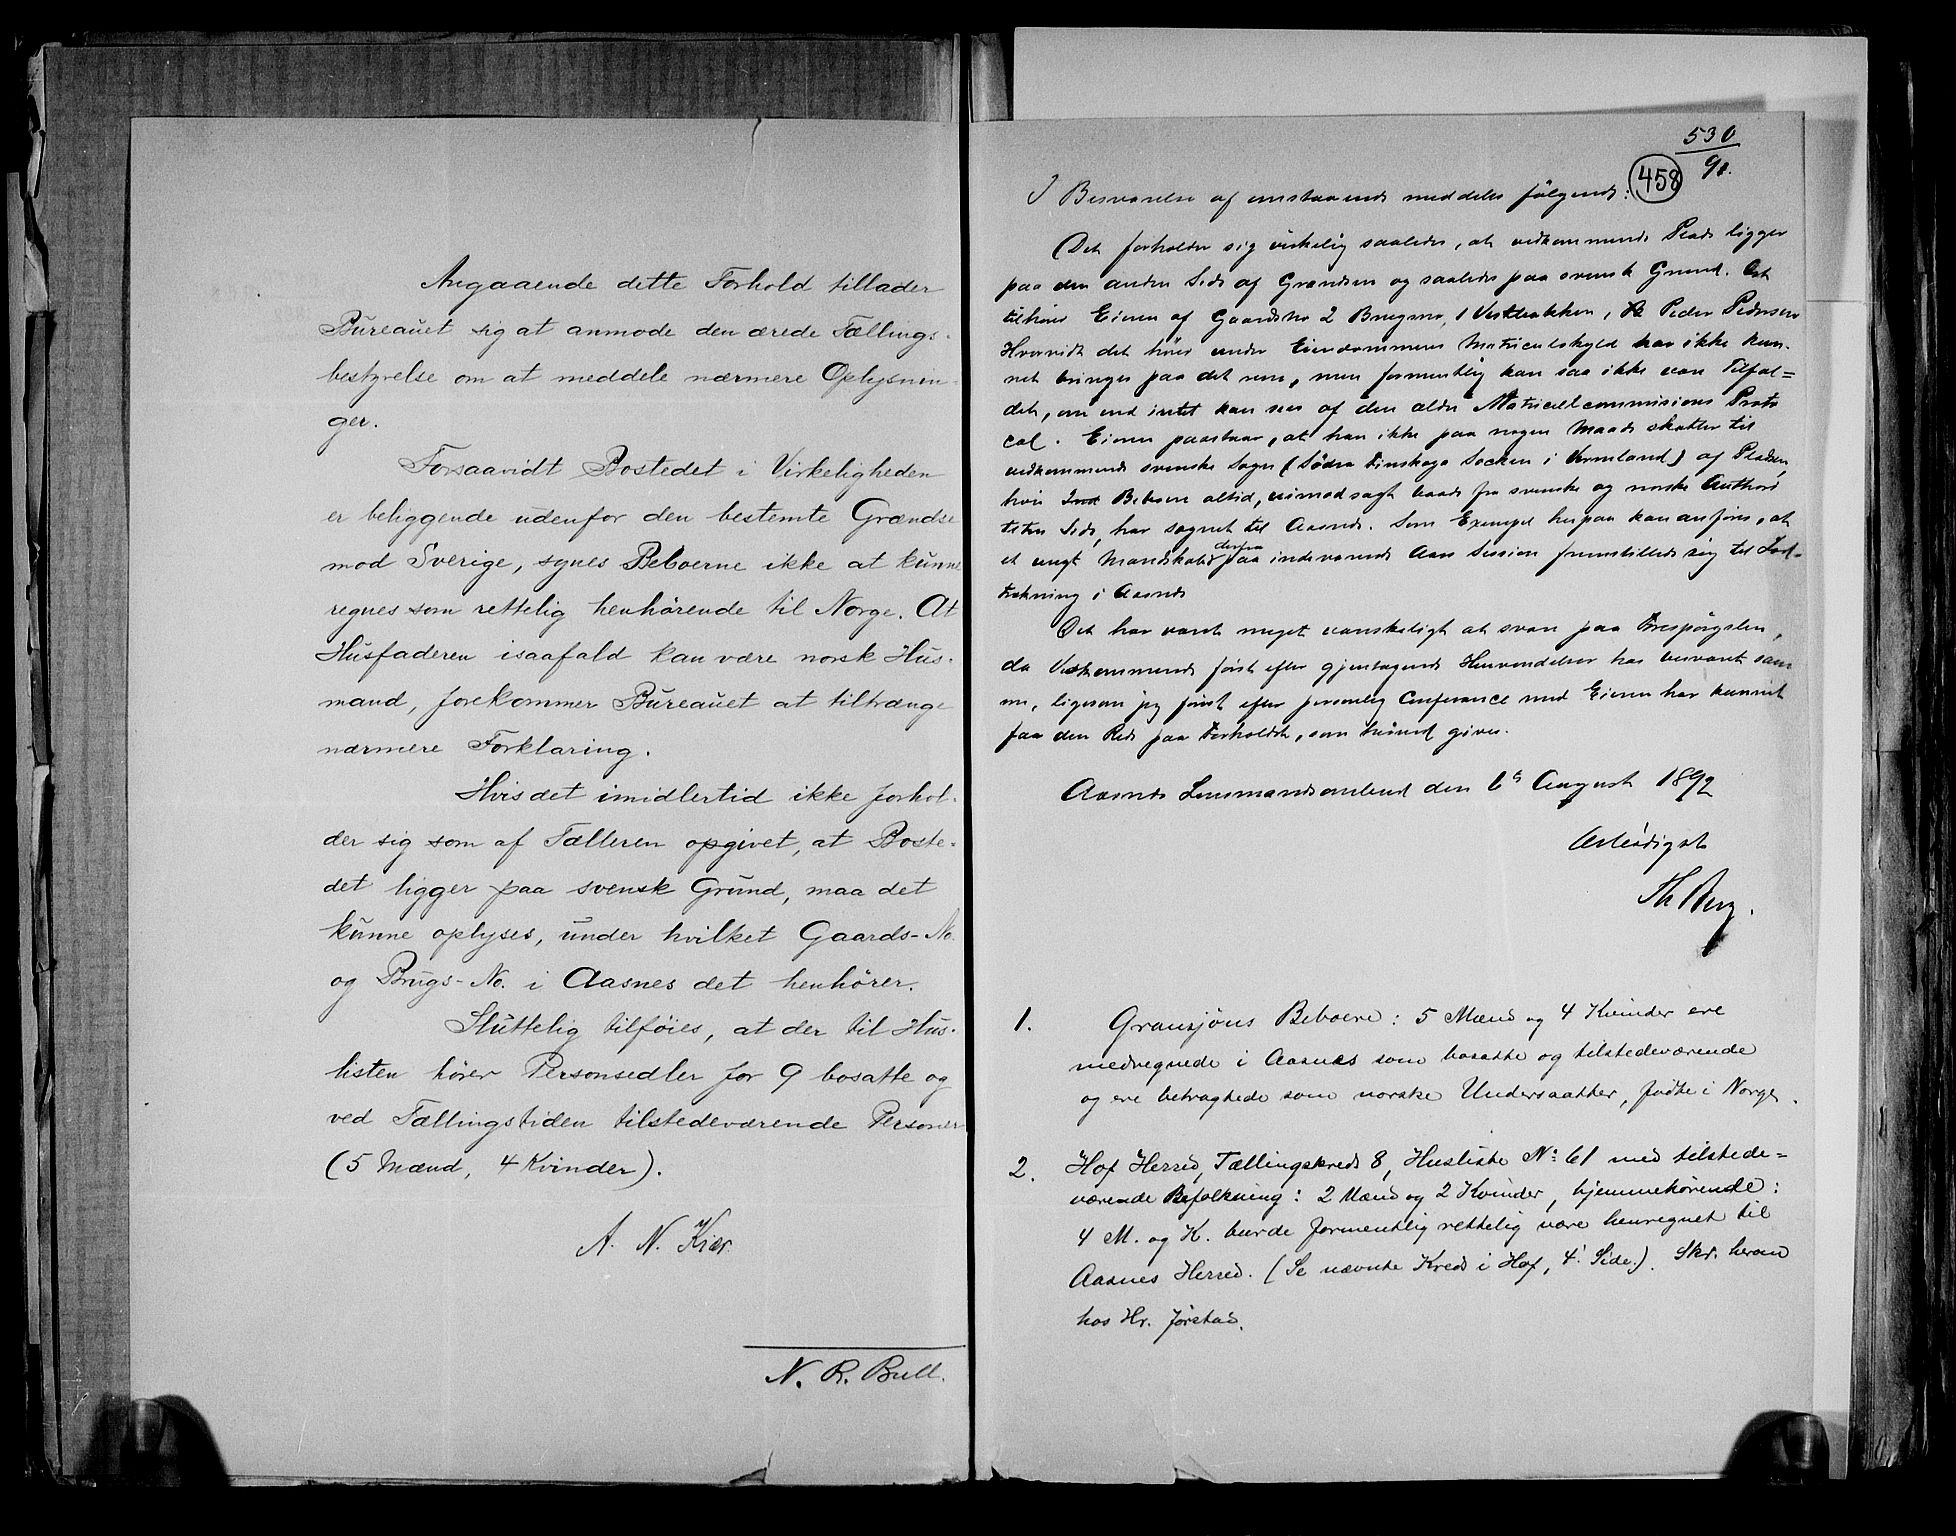 Angaaende dette Forhold tillader
Bureauet sig at anmode den ærede Tællings-
bestyrelse om at meddele nærmere Oplysnin-
ger.
Forsaavidt Bostedet i Virkeligheden
er beliggende udenfor den bestemte Grændse
mod Sverige, synes Beboerne ikke at kunne
regnes som rettelig henhörende til Norge. At
Husfaderen isaafald kan være norsk Hus-
mand, forekommer Bureauet at tiltrænge
nærmere Forklaring.
Hvis det imidlertid ikke forhol-
der sig som af Tælleren opgivet, at Boste-
det ligger paa svensk Grund, maa det
kunne oplyses, under hvilket Gaards-No.
og Brugs-No. i Aasnes det henhörer.
Sluttelig tilföies, at der til Hus-
listen hörer Personsedler for 9 bosatte og
ved Tællingstiden tilstedeværende Personer
(5 Mænd, 4 Kvinder).
A. N. Kiær.
N. R. Bull.
530
91.
458
I Besvarelse af omstaaende meddeles fölgende:
Det forholder sig virkelig saaledes, at vedkommende Plads ligger
paa den anden Side af Grændsen og saaledes paa svensk Grund. Det
tilhörer Eieren af Gaardsno 2 Brugsno. 1 Vestbakken, Peder Pedersen
Hvorvidt det hörer under Eiendommens Matriculskyld har ikke kun-
net bringes paa det rene, men formentlig kan saa ikke være Tilfæl=
det, om end intet kan sees af den ældre Matriculcommisions Proto
col. Eieren paastaar, at han ikke paa nogen Maade skatter til
vedkommende svenske Sogn (Södra Finskoga Socken i Vermland) af Pladsen,
hvis Beboere altid, uimodsagt baade fra svenske og norske Authori
teters Side, har sognet til Aasnes. Som Exempel herpaa kan anföres, at
et ungt Mandskab derfra paa indeværende Aars Session fremstillede sig til Lod-
trækning i Aasnes
Det har været meget vanskeligt at svare paa Forespörgslen,
da Vedkommende först efter gjentagende Henvendelser har besvaret sam
me, ligesom jeg först efter personlig Conferance med Eieren har kunnet
faa den Rede paa Forholdet, som herved gives.
Aasnes Lensmandsombud den 6te August 1892
Ærbödigst
Th Berg.
1. Gransjöns Beboere: 5 Mænd og 4 Kvinder ere
medregnede i Aasnes som bosatte og tilstedeværende
og ere betragtede som norske Undersaatter, födte i Norge.
2. Hof Herred, Tællingskreds 8, Husliste No 61 med tilstede=
værende Befolkning: 2 Mænd og 2 Kvinder, hjemmehörende:
4 M. og K. burde formentlig rettelig være henregnet til
Aasnes Herred. (Se nævnte Kreds i Hof, 4. Side.). Skr. herom
hos Hr. Jörstad.